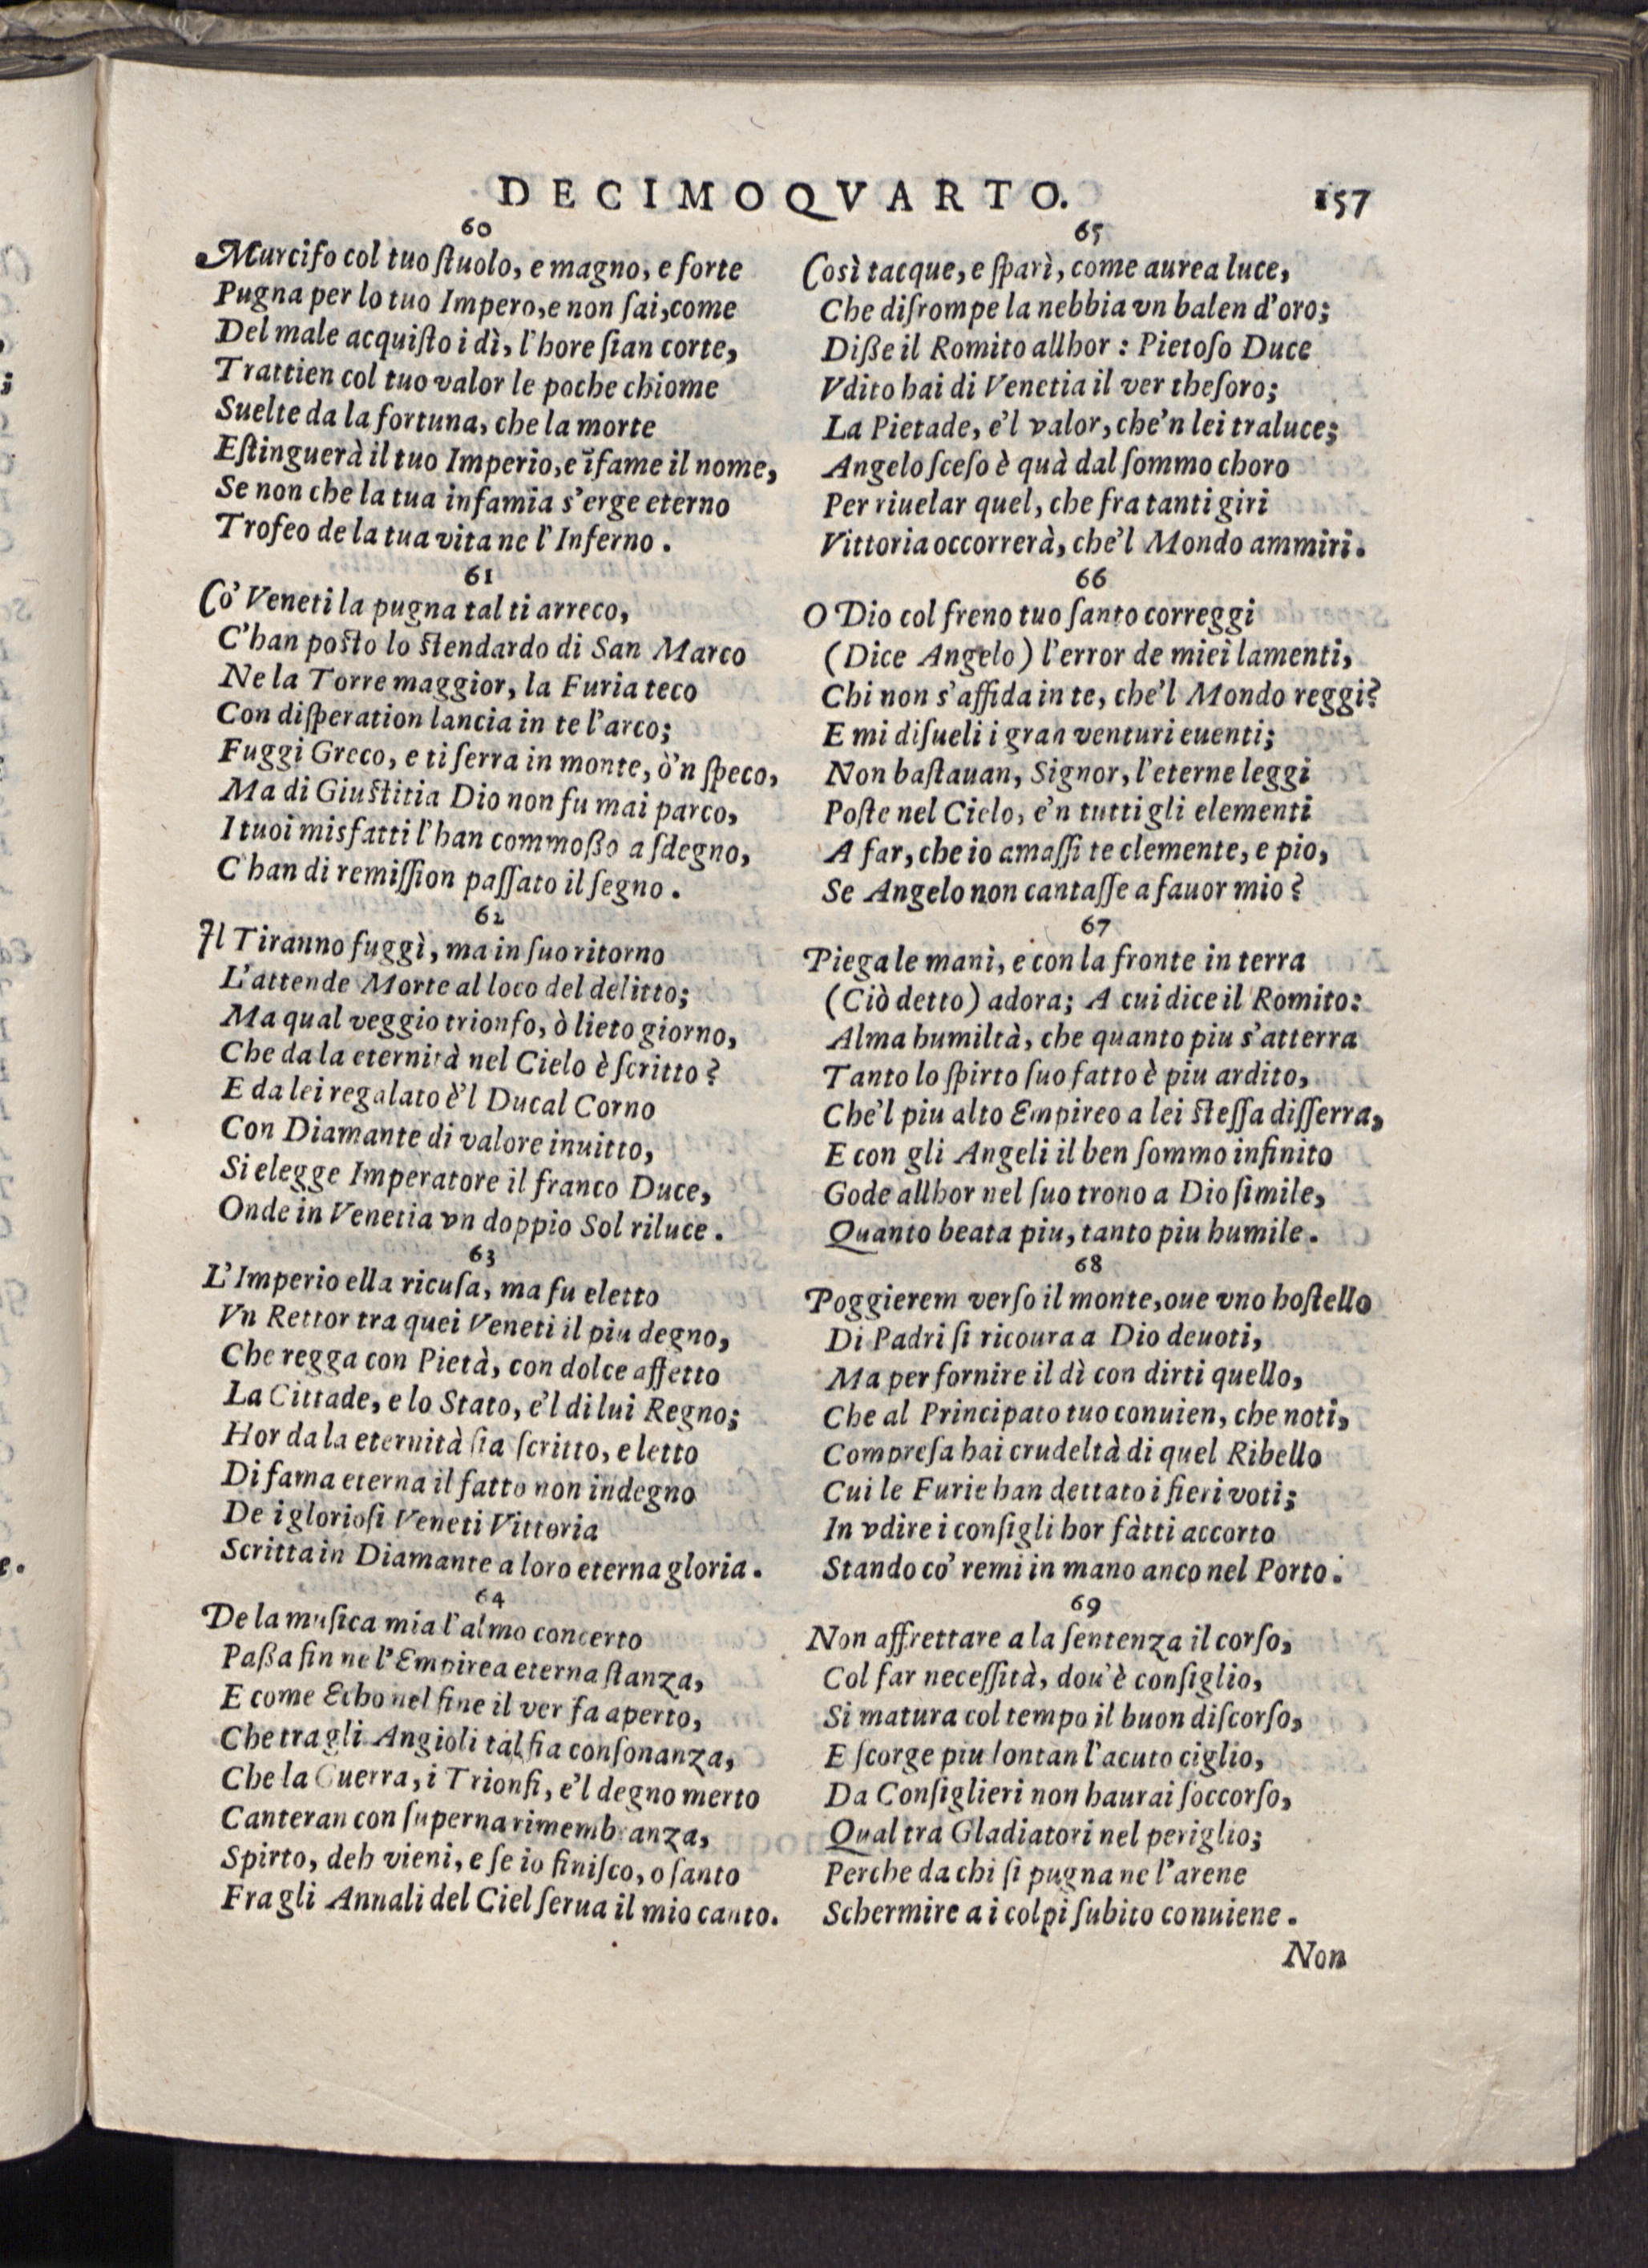 DECIMOQVARTO. 157
60
Murcifo col tuo ſtuolo, e magno, e forte
Pugna per lo tuo Impero, e non ſai, come
Del male acquiſto i dì, l'hore ſian corte,
Trattien col tuo valor le poche chiome
Suelte da la fortuna, che la morte
Eſtinguerà il tuo Imperio, e ĩfame il nome,
Se non che la tua infamia s'erge eterno
Trofeo de la tua vita ne l'Inferno.
61
Co' Veneti la pugna tal ti arreco,
C'han poſto lo ſtendardo di San Marco
Ne la Torre maggior, la Furia teco
Con diſperation lancia in te l'arco;
Fuggi Greco, e ti ſerra in monte, ò'n ſpeco,
Ma di Giuſtitia Dio non fu mai parco,
I tuoi misfatti l'han commoßo a ſdegno,
C'han di remiſſion paſſato il ſegno.
62
Il Tiranno fuggì, ma in ſuo ritorno
L'attende Morte al loco del delitto;
Ma qual veggio trionfo, ò lieto giorno,
Che da la eternità nel Cielo è ſcritto?
E da lei regalato è'l Ducal Corno
Con Diamante di valore inuitto,
Si elegge Imperatore il franco Duce,
Onde in Venetia vn doppio Sol riluce.
63
L'Imperio ella ricuſa, ma fu eletto
Vn Rettor tra quei Veneti il piu degno,
Che regga con Pietà, con dolce affetto
La Cittade, e lo Stato, e'l di lui Regno;
Hor da la eternità ſia ſcritto, e letto
Di fama eterna il fatto non indegno
De i glorioſi Veneti Vittoria
Scritta in Diamante a loro eterna gloria.
64
De la muſica mia l'almo concerto
Paßa fin ne l'Empirea eterna ſtanza,
E come Echo nel fine il ver fa aperto,
Che tra gli Angioli tal fia conſonanza,
Che la Guerra, i Trionfi, e'l degno merto
Canteran con ſuperna rimembranza,
Spirto, deh vieni, e ſe io finiſco, o ſanto
Fra gli Annali del Ciel ſerua il mio canto.
65
Così tacque, e ſparì, come aurea luce,
Che diſrompe la nebbia vn balen d'oro;
Diße il Romito allhor: Pietoſo Duce
Vdito hai di Venetia il ver theſoro;
La Pietade, e'l valor, che'n lei traluce;
Angelo ſceſo è quà dal ſommo choro
Per riuelar quel, che fra tanti giri
Vittoria occorrerà, che'l Mondo ammiri.
66
O Dio col freno tuo ſanto correggi
(Dice Angelo) l'error de miei lamenti,
Chi non s'affida in te, che'l Mondo reggi?
E mi diſueli i gran venturi euenti;
Non baſtauan, Signor, l'eterne leggi
Poſte nel Cielo, e'n tutti gli elementi
A far, che io amaſſi te clemente, e pio,
Se Angelo non cantaſſe a fauor mio?
67
Piega le mani, e con la fronte in terra
(Ciò detto) adora; A cui dice il Romito:
Alma humiltà, che quanto piu s'atterra
Tanto lo ſpirto ſuo fatto è piu ardito,
Che'l piu alto Empireo a lei ſteſſa diſſerra,
E con gli Angeli il ben ſommo infinito
Gode allhor nel ſuo trono a Dio ſimile,
Quanto beata piu, tanto piu humile.
68
Poggierem verſo il monte, oue vno hoſtello
Di Padri ſi ricoura a Dio deuoti,
Ma per fornire il dì con dirti quello,
Che al Principato tuo conuien, che noti,
Compreſa hai crudeltà di quel Ribello
Cui le Furie han dettato i fieri voti;
In vdire i conſigli hor fàtti accorto
Stando co' remi in mano anco nel Porto.
69
Non affrettare a la ſentenza il corſo,
Col far neceſſità, dou'è conſiglio,
Si matura col tempo il buon diſcorſo,
E ſcorge piu lontan l'acuto ciglio,
Da Conſiglieri non haurai ſoccorſo,
Qual tra Gladiatori nel periglio;
Perche da chi ſi pugna ne l'arene
Schermire a i colpi ſubito conuiene.
Non